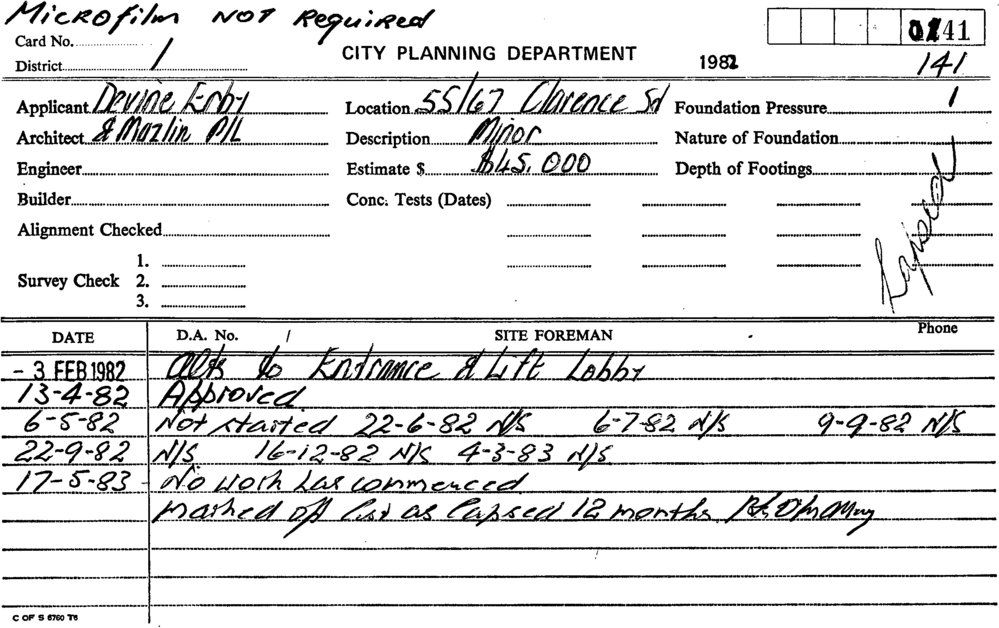 Microfilm NOT Required
Card No.
0141
District 1
CITY PLANNING DEPARTMENT
1982
141
1
Applicant Devine Erby
Location 55/67 Clarence St
Foundation Pressure
Architect & Mazlin P/L
Description Minor
Nature of Foundation
Engineer
Estimate $ $45,000
Depth of Footings
Builder
Conc. Tests (Dates)
Lapsed
Alignment Checked
1.
Survey Check 2.
3.
DATE D.A. No. / SITE FOREMAN Phone
- 3 FEB 1982 Alts to Entrance & Lift Lobby
13-4-82 Approved
6-5-82 Not started 22-6-82 N/S 6-7-82 N/S 9-9-82 N/S
22-9-82 N/S 16-12-82 N/S 4-3-83 N/S
17-5-83 - No work has commenced
marked off list as lapsed 12 months
C OF S 6760 T6